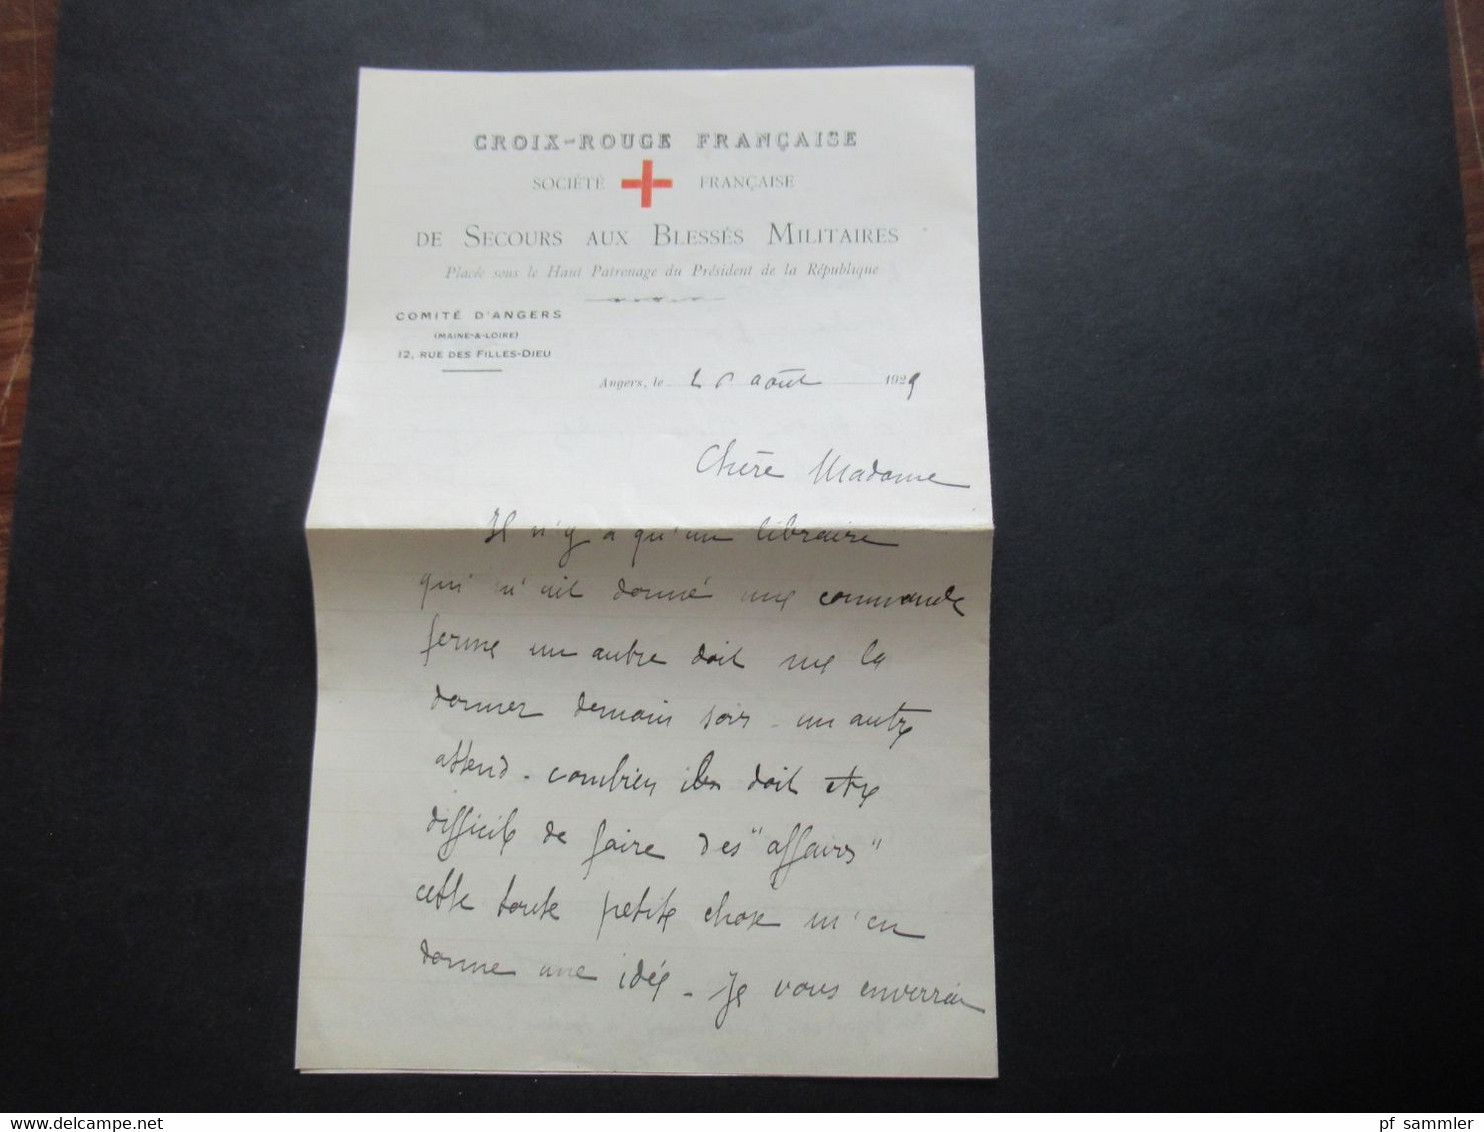 CROIX-ROUGE FRANÇAISE
SOCIÉTÉ FRANÇAISE
DE SECOURS AUX BLESSÉS MILITAIRES
Placée sous le Haut Patronage du Président de la République
COMITÉ D'ANGERS
(MAINE-&-LOIRE)
12, RUE DES FILLES-DIEU
Angers, le août 1929
Chère Madame
Il n'y a qu'un libraire
qui m'ait donné une commande
ferme un autre doit me la
donner demain soir - un autre
attend - combien doit être
difficile de faire des "affaires"
cette toute petite chose m'en
donne une idée - Je vous enverrai
www.delcampe.net
pf sammler